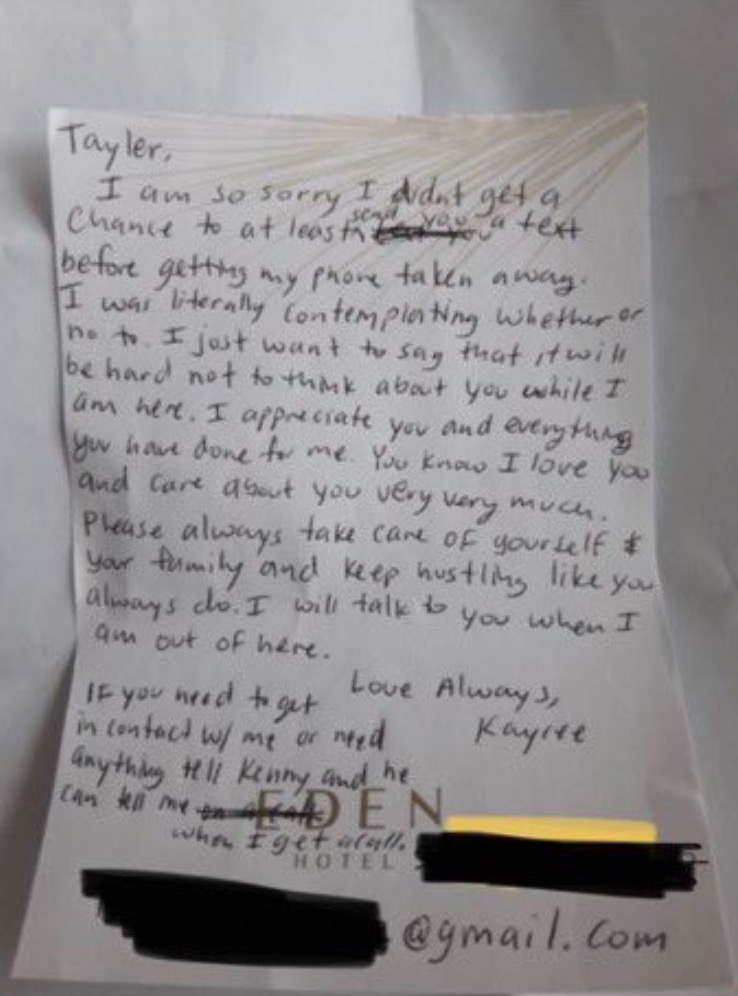 Tayler,
I am so sorry I didnt get a
Chance to at least send you a text
before getting my phone taken away.
I was literally contemplating whether or
no to. I just want to say that it will
be hard not to think about you while I
am here. I appreciate you and everything
you have done for me. You know I love you
and care about you very very much.
Please always take care of yourself &
your family and keep hustling like you
always do. I will talk to you when I
am out of here.
Love Always,
Kayree
If you need to get
in contact w/ me or need
anything tell Kenny and he
can tell me
when I get a call.
EDEN
HOTEL
@gmail.com